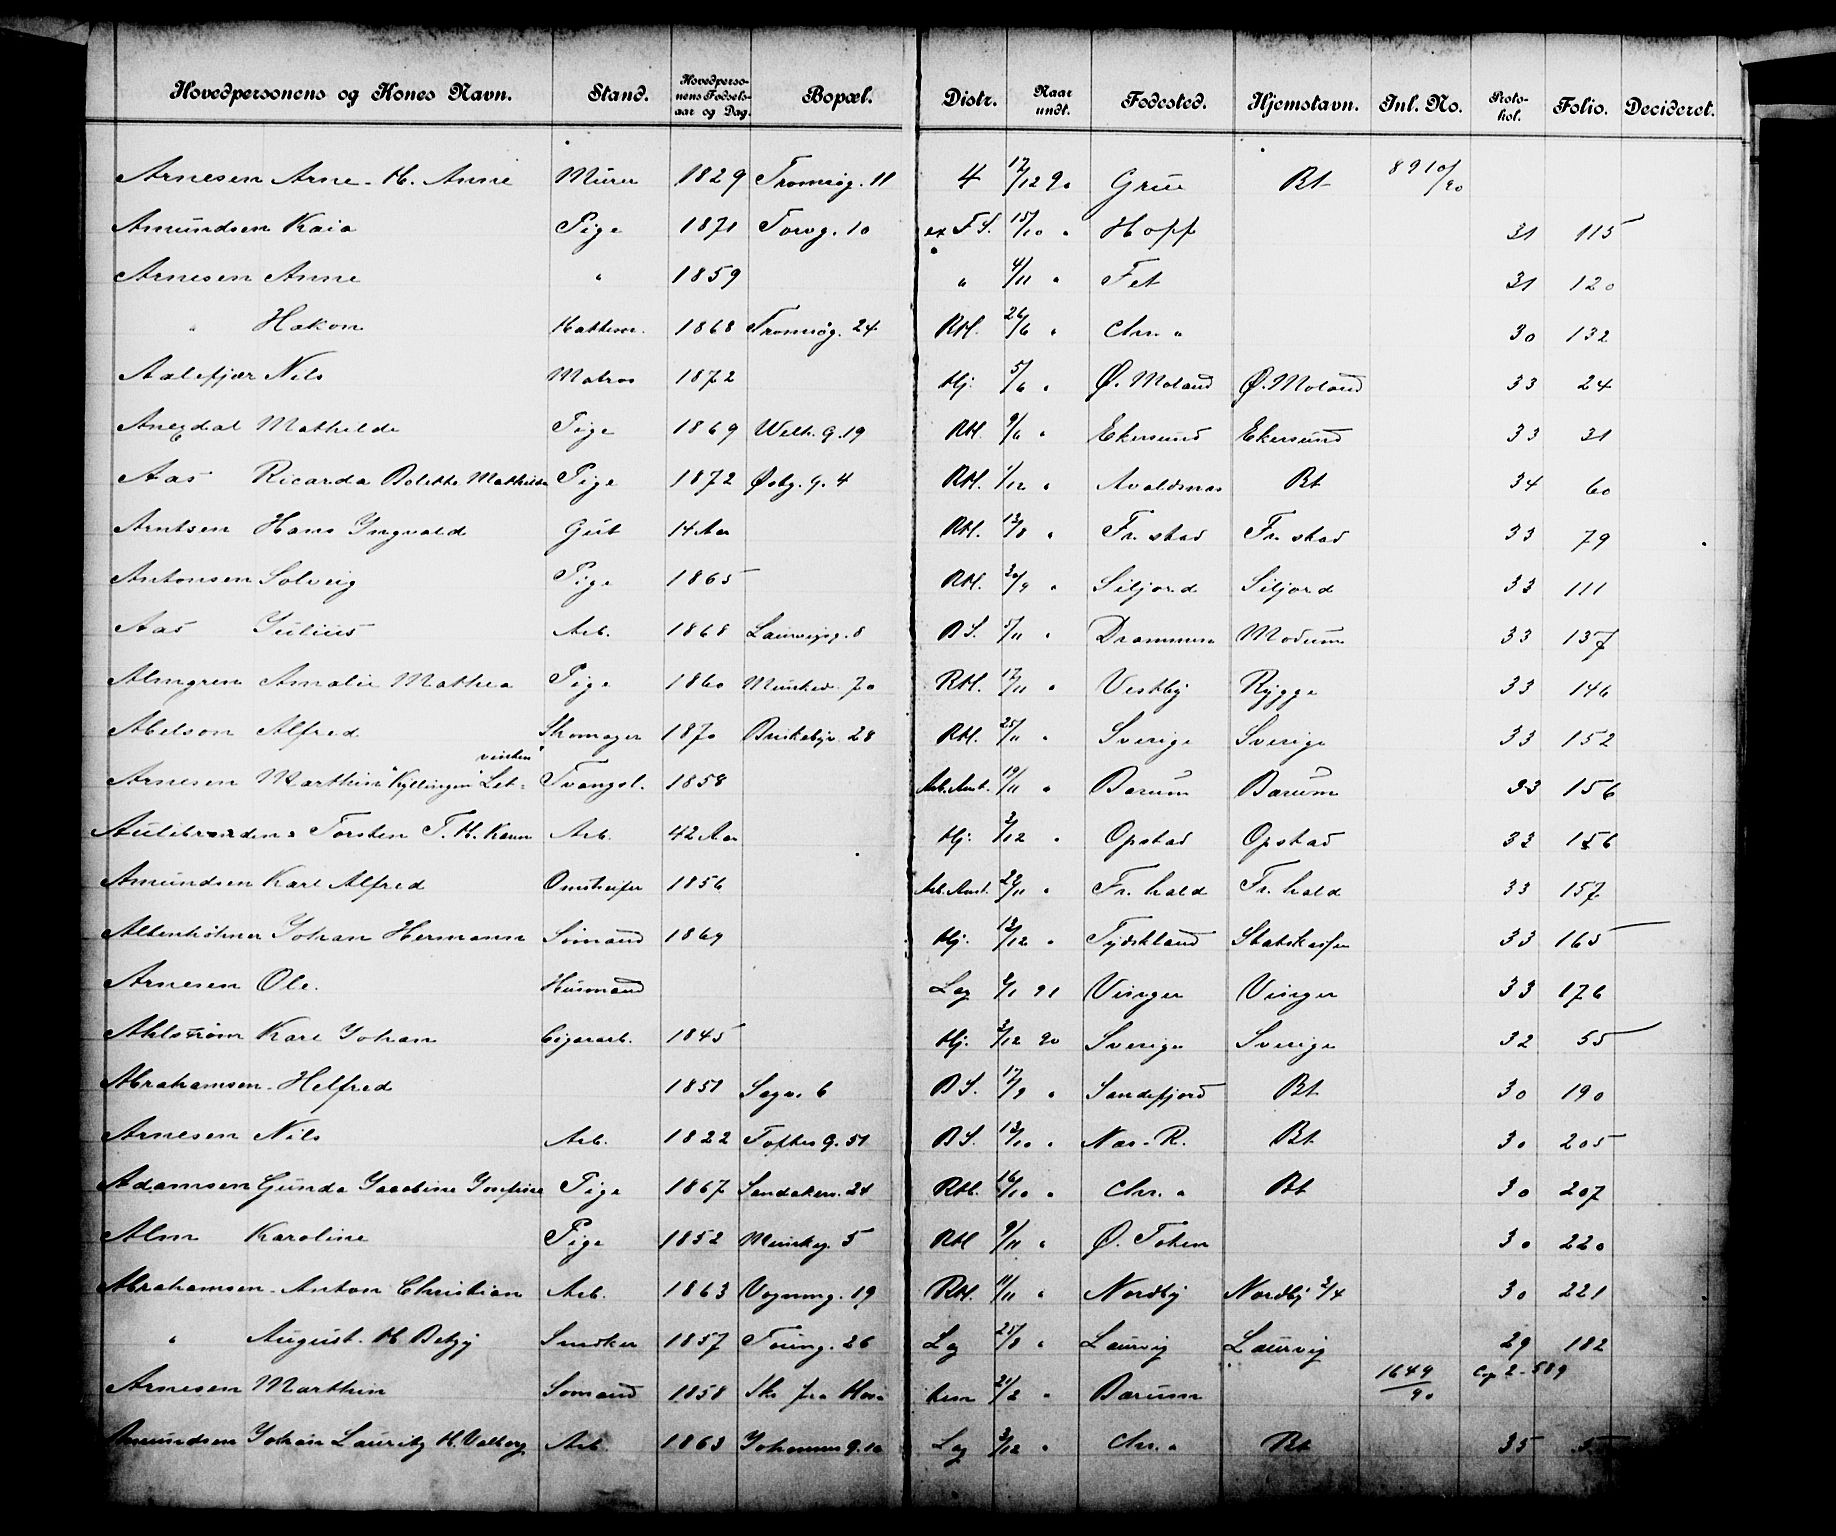 Hovedpersonens og Kones Navn. Stand. Hovedpersonens Fødselsaar og Dag. Bopæl. Distr. Naar undt. Fødested. Hjemstavn. Inl. No. Protokol. Folio. Decideret.
Arnesen Arne - H. Anne Murer 1829 Tromsøg. 11 4 17/12 90 Grue Bt 8910/90
Amundsen Kaia Pige 1871 Torvg. 10 F.S. 15/10 " Hoff 31 115
Arnesen Anne " 1859 " 4/11 " Fet 31 120
" Hakon 1868 Tromsøg. 24 RH. 26/6 " Chr. a 30 132
Aalefjær Nils Matros 1872 Hj. 5/6 " Ø. Moland Ø. Moland 33 24
Mathilde Pige 1869 Welh. g. 19 RH. 9/6 " Ekersund Ekersund 33 31
Aas Ricarda Bolette Mathilde Pige 1872 Østg. g. 4 RH. 1/12 " Avaldsnas Bt 34 60
Arntsen Hans Yngvald Gut 14 Aar RH. 12/8 " Fr. stad Fr. stad 33 79
Antonsen Solveig Pige 1865 RH. 20/9 " Siljord Siljord 33 111
Aas Julius Arb. 1868 Laurvigsg. 8 B.S. 5/11 " Drammen Modum 33 137
Almgren Amalie Mathea Pige 1860 Munked. 70 RH. 17/11 " Vestby Rygge 33 146
Abelson Alfred Skomager 1870 Briskebyv. 28 RH. 25/11 " Sverige Sverige 33 152
Arnesen Marthin "Kyllingen" Let- Tvangsl. 1858 Arb. Anst. 19/11 " Barum Barum 33 156
Torsten T. H. Karen Arb. 42 Aar Hj. 3/12 " Opstad Opstad 33 156
Amundsen Karl Alfred Omstreifer 1856 Arb. Anst. 22/11 " Fr. hald Fr. hald 33 157
Altenhöhner Johan Hermann Sømand 1869 Hj. 12/12 " Tydskland Statskassen 33 165
Arnesen Ole. Husmand Lag 91 Vinger Vinger 33 176
Ahlstrøm Karl Johan Cigararb. 1845 Hj. 3/12 90 Sverige Sverige 32 55
Abrahamsen - Helfred 1851 Sagv. 6 B.S. 17/9 " Sandefjord Bt 30 190
Arnesen Nils Arb. 1822 Toftes g. 51 B.S. 13/10 " Nas - R. Bt 30 205
Adamsen Gunda Jacobine Josefine Pige 1867 Sandakerv. 24 RH. 16/10 " Chr. a Bt 30 207
Alm Karoline Pige 1852 Munkeg. 5 RH 9/11 " Ø. Toten 30 220
Abrahamsen - Anton Christian Arb. 1863 Vognmg. 19 RH. 11/11 " Nordby Nordby 2/4 30 221
" August. H. Betzy Snedker 1857 26 Lag 25/8 " Laurvig Laurvig 29 182
Arnesen Marthin Sømand 1858 Sk. fra 21/2 " Barum 1649/90 Cop 2 - 589
Amundsen Johan Lauritz H. Valborg Arb. 1863 Johannes g. 10 Lag 3/12 " Chr. a Bt 35